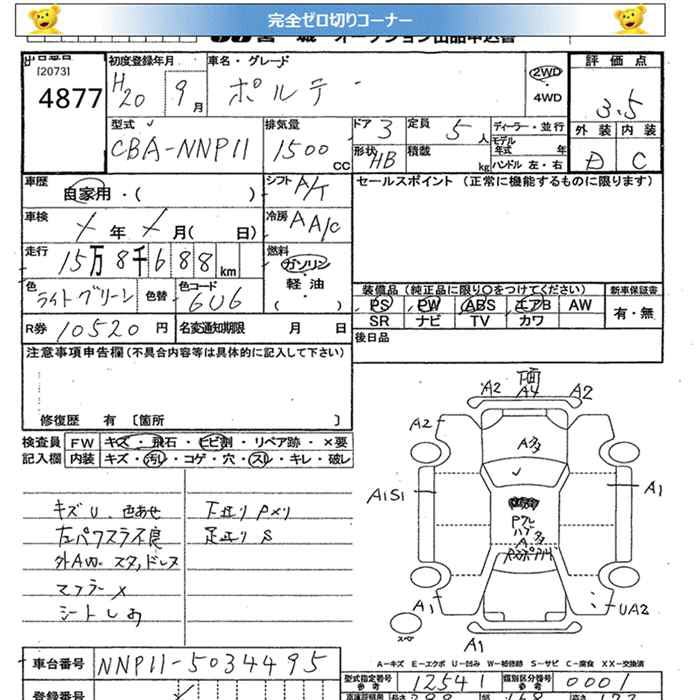 完全ゼロ切りコーナー
宮城 オークション出品申込書
出品番号
[2073]
4877
初度登録年月
H20 9月
車名・グレード
ポルテ
2WD
・
4WD
評価点
3.5
外装 内装
D C
型式
CBA-NNP11
排気量
1500 CC
ドア 3
形状 HB
定員 5 人
積載 kg
ディーラー・並行
モデル年式 年
ハンドル 左・右
車歴
自家用・( )
シフト A/T
セールスポイント (正常に機能するものに限ります)
車検
年 月( 日)
冷房 AA/C
走行
15万8千688km
燃料
ガソリン
・
軽油
・
( )
色
ライトグリーン
色替
色コード
6U6
装備品 (純正品に限り〇をつけてください)
PS PW ABS エアB AW
SR ナビ TV カワ
新車保証書
有・無
R券 10520円
名変通知期限 月 日
後日品
注意事項申告欄(不具合内容等は具体的に記入して下さい)
修復歴 有 〔箇所 〕
検査員 FW キズ・飛石・ヒビ割・リペア跡・×要
記入欄 内装 キズ・汚レ・コゲ・穴・スレ・キレ・破レ
キズU、色あせ
左パワスラ不良
外AW、スタッドレス
マフラーX
シートしめ
下廻りPメリ
足廻りS
下面
A2 A4 A2
A2
A多
A1S1
A1
Pクレ
ハゲ
A多
A1
UA2
スペア
A1
A-キズ E-エクボ U-凹み W-補修跡 S-サビ C-腐食 XX-交換済
車台番号 NNP11-5034495
型式指定番号
参考
12541
類別区分番号
参考
0001
登録番号